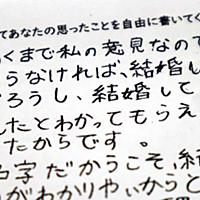 てあなたの思ったことを自由に書いてく
くまで私の意見なので
らなければ、結婚し
ろうし、結婚して
したとわかってもらえ
たからです。
字だからこそ、結
がわかりやいからと